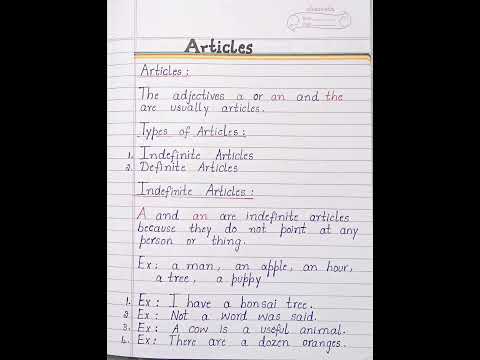 classmate
Date
Page
Articles
Articles :
The adjectives a or an and the
are usually articles.
Types of Articles :
1. Indefinite Articles
2. Definite Articles
Indefinite Articles :
A and an are indefinite articles
because they do not point at any
person or thing.
Ex : a man, an apple, an hour,
a tree, a puppy
1. Ex : I have a bonsai tree.
2. Ex : Not a word was said.
3. Ex : A cow is a useful animal.
4. Ex : There are a dozen oranges.